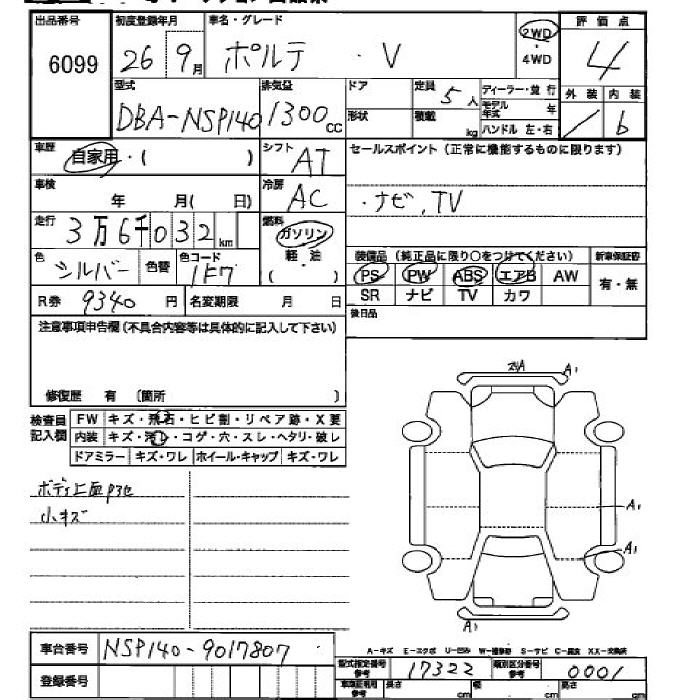 出品番号 初度登録年月 車名・グレード 2WD 評価点
6099 26 9月 ポルテ ・ V 4WD 4
型式 排気量 ドア 定員 5人 ディーラー・並行 外装 内装
DBA-NSP140 1300cc 形状 積載 kg モデル年式 年 ハンドル 左・右 / b
車歴 自家用・( ) シフト AT セールスポイント (正常に機能するものに限ります)
車検 年 月( 日) 冷房 AC ・ナビ, TV
走行 3万6千032km 燃料 ガソリン
軽・油
( )
装備品 (純正品に限り○をつけてください) 新車保証書
色 シルバー 色替 色コード 1F7 PS PW ABS エアB AW 有・無
R券 9340円 名変期限 月 日 SR ナビ TV カワ
注意事項申告欄(不具合内容等は具体的に記入して下さい) 後日品
修復歴 有 〔箇所 〕
検査員 FW キズ・飛石・ヒビ割・リペア跡・X要
記入欄 内装 キズ・汚レ・コゲ・穴・スレ・ヘタリ・破レ
ドアミラー キズ・ワレ ホイール・キャップ キズ・ワレ
A1
A1
A1
A1
小キズ
A-キズ E-エクボ U-凹み W-補修跡 S-サビ C-腐食 XX-交換済
車台番号 NSP140-9017807
型式指定番号 参考 17322 類別区分番号 参考 0001
登録番号 長さ cm 幅 cm 高さ cm